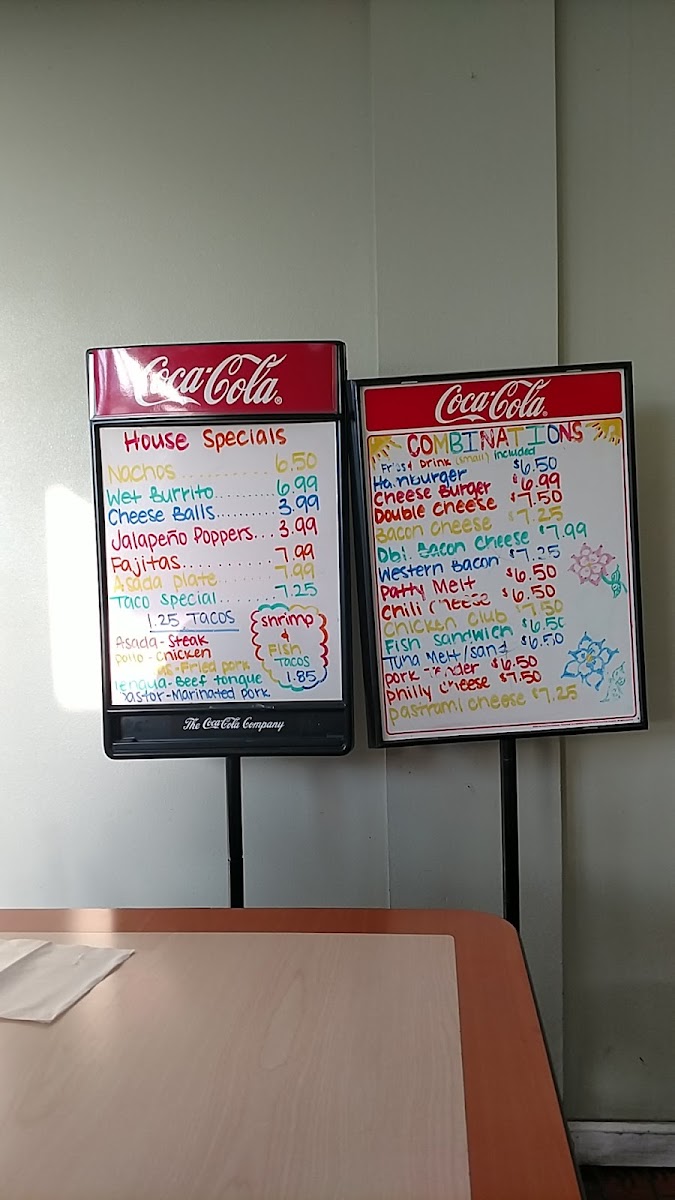 Coca-Cola
House Specials
Nachos.......... 6.50
Wet Burrito........ 6.99
Cheese Balls....... 3.99
Jalapeño Poppers... 3.99
Fajitas.......... 7.99
Asada plate....... 7.99
Taco Special...... 7.25
1.25 TACOS
Asada-Steak
pollo-Chicken
-Fried pork
lengua-Beef tongue
pastor-Marinated pork
shrimp
&
FISH
TACOS
1.85
The Coca-Cola Company
Coca-Cola
COMBINATIONS
Drink (small) included
Hamburger $6.50
Cheese Burger $6.99
Double Cheese $7.50
Bacon Cheese $7.25
Dbl Bacon Cheese $7.99
Western Bacon $7.25
Patty Melt $6.50
Chili Cheese $6.50
Chicken Club $7.50
Fish Sandwich $6.50
Tuna Melt/Sand $6.50
pork $6.50
philly cheese $7.50
pastrami cheese $7.25